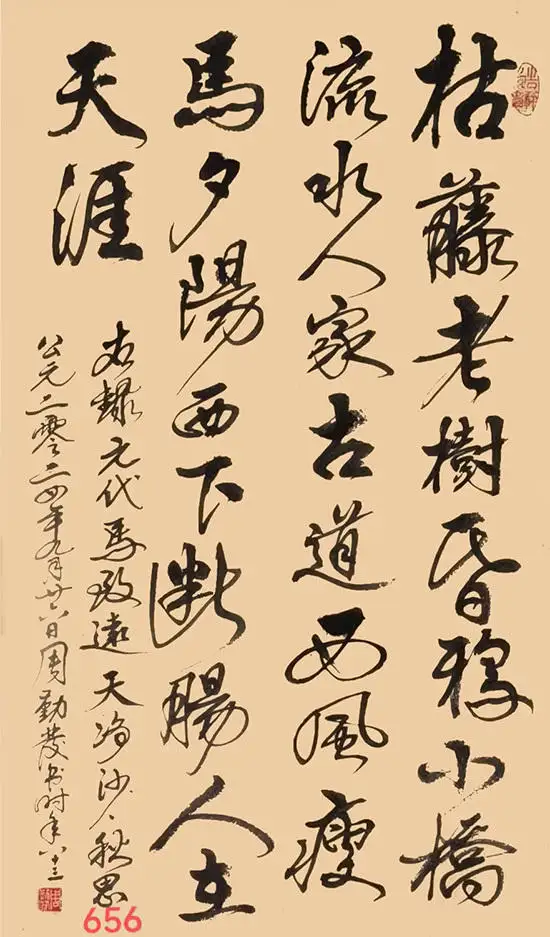 枯藤老樹昏鴉小橋
流水人家古道西風瘦
馬夕陽西下斷腸人在
天涯
右錄元代馬致遠天净沙、秋思
公元二零二四年九月廿六日周勤發書時年八十三
656